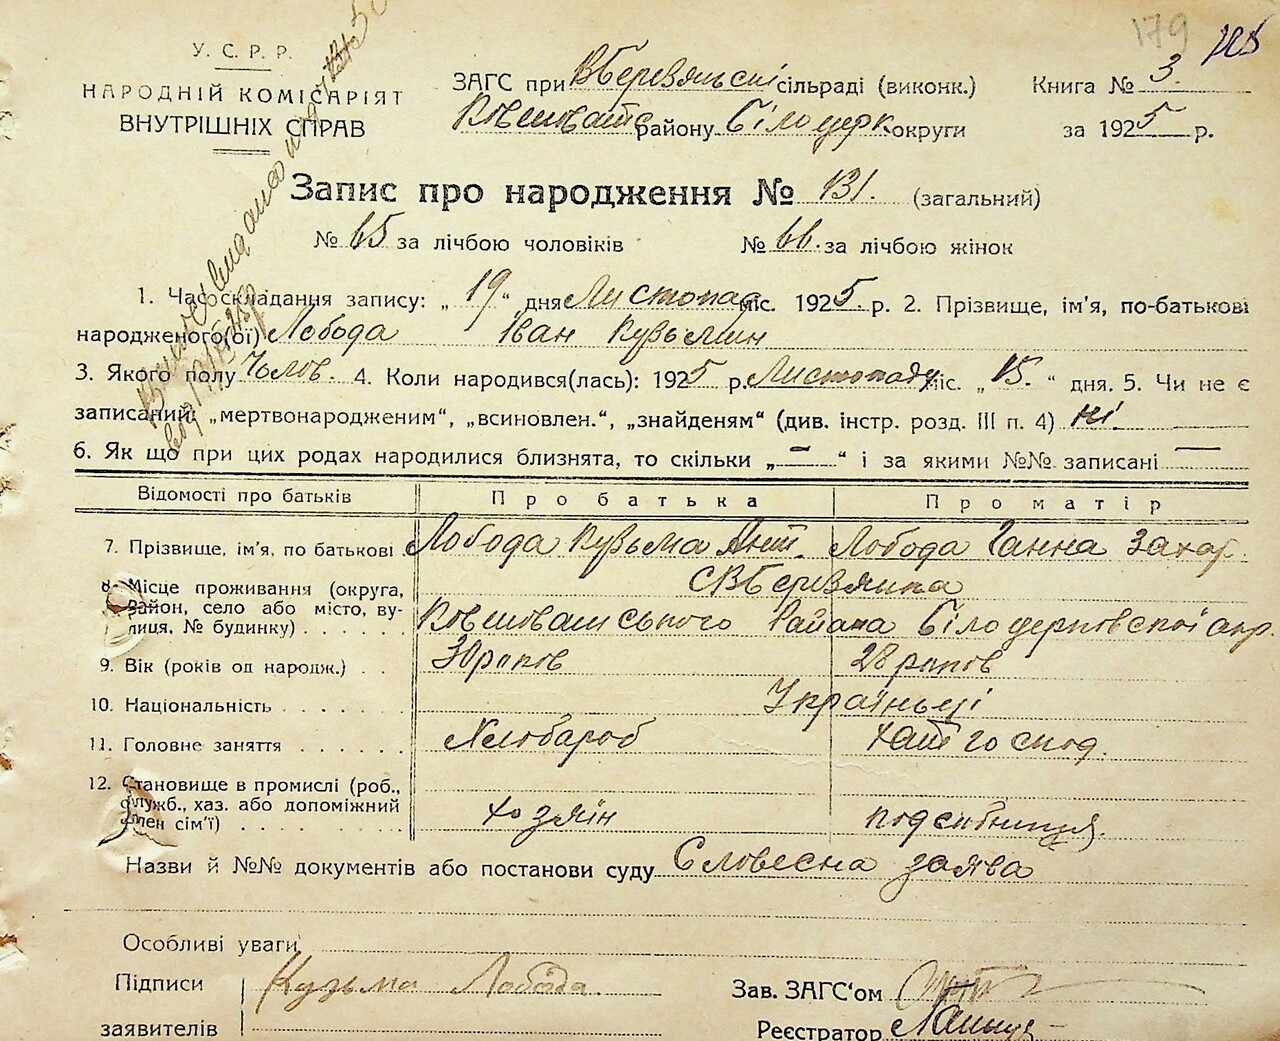 179
У. С. Р. Р.
НАРОДНІЙ КОМІСАРІЯТ
ВНУТРІШНІХ СПРАВ
ЗАГС при ВБерезянскі сільраді (виконк.) Книга № 3.
району Білоцерк округи за 1925 р.
Запис про народження № 131. (загальний)
№ 65 за лічбою чоловіків № 66. за лічбою жінок
1. Час складання запису: „ 19 “ дня Листопад міс. 1925. р. 2. Прізвище, ім'я, по-батькові
народженого(ої) Лобода Іван Кузьмин
3. Якого полу Чолов. 4. Коли народився(лась): 1925 р. Листопаду міс. „ 15. “ дня. 5. Чи не є
записаний: „мертвонародженим“, „всиновлен.“, „знайденям“ (див. інстр. розд. III п. 4) ні.
6. Як що при цих родах народилися близнята, то скільки „ — “ і за якими №№ записані —
Відомості про батьків Про батька Про матір
7. Прізвище, ім'я, по батькові Лобода Кузьма Ант. Лобода Ганна Захар.
8. Місце проживання (округа, СВБерезянка
район, село або місто, ву-
лиця, № будинку) . . . . . . Району Білоцерковскоі окр.
9. Вік (років од народж.) . . 30 років 28 років
10. Національність . . . . . . Україньці
11. Головне заняття . . . . . . Хлібароб хатн господ.
12. Становище в промислі (роб.,
служб., хаз. або допоміжний
член сім'ї) . . . . . . . . хозяїн подсобниця
Назви й №№ документів або постанови суду Словесна заява
Особливі уваги
Підписи Кузьма Лобода. Зав. ЗАГС'ом
заявителів Реєстратор